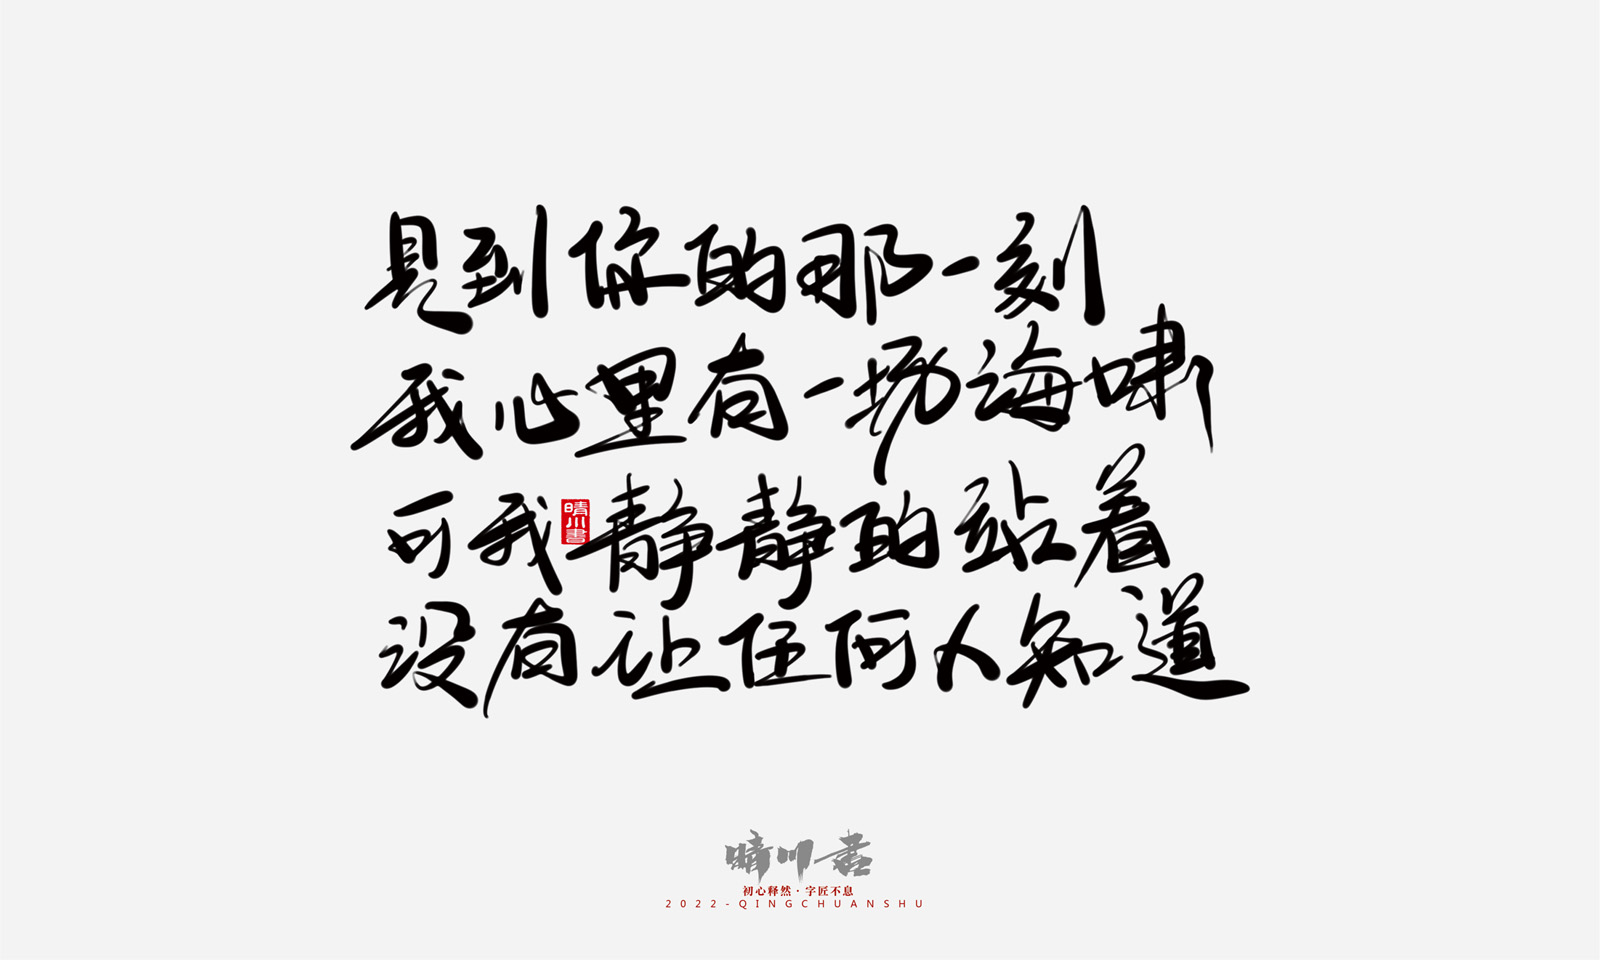 见到你的那一刻
我心里有一场海啸
可我静静的站着
没有让任何人知道
晴川書
晴川书
初心释然·字匠不息
2022-QINGCHUANSHU